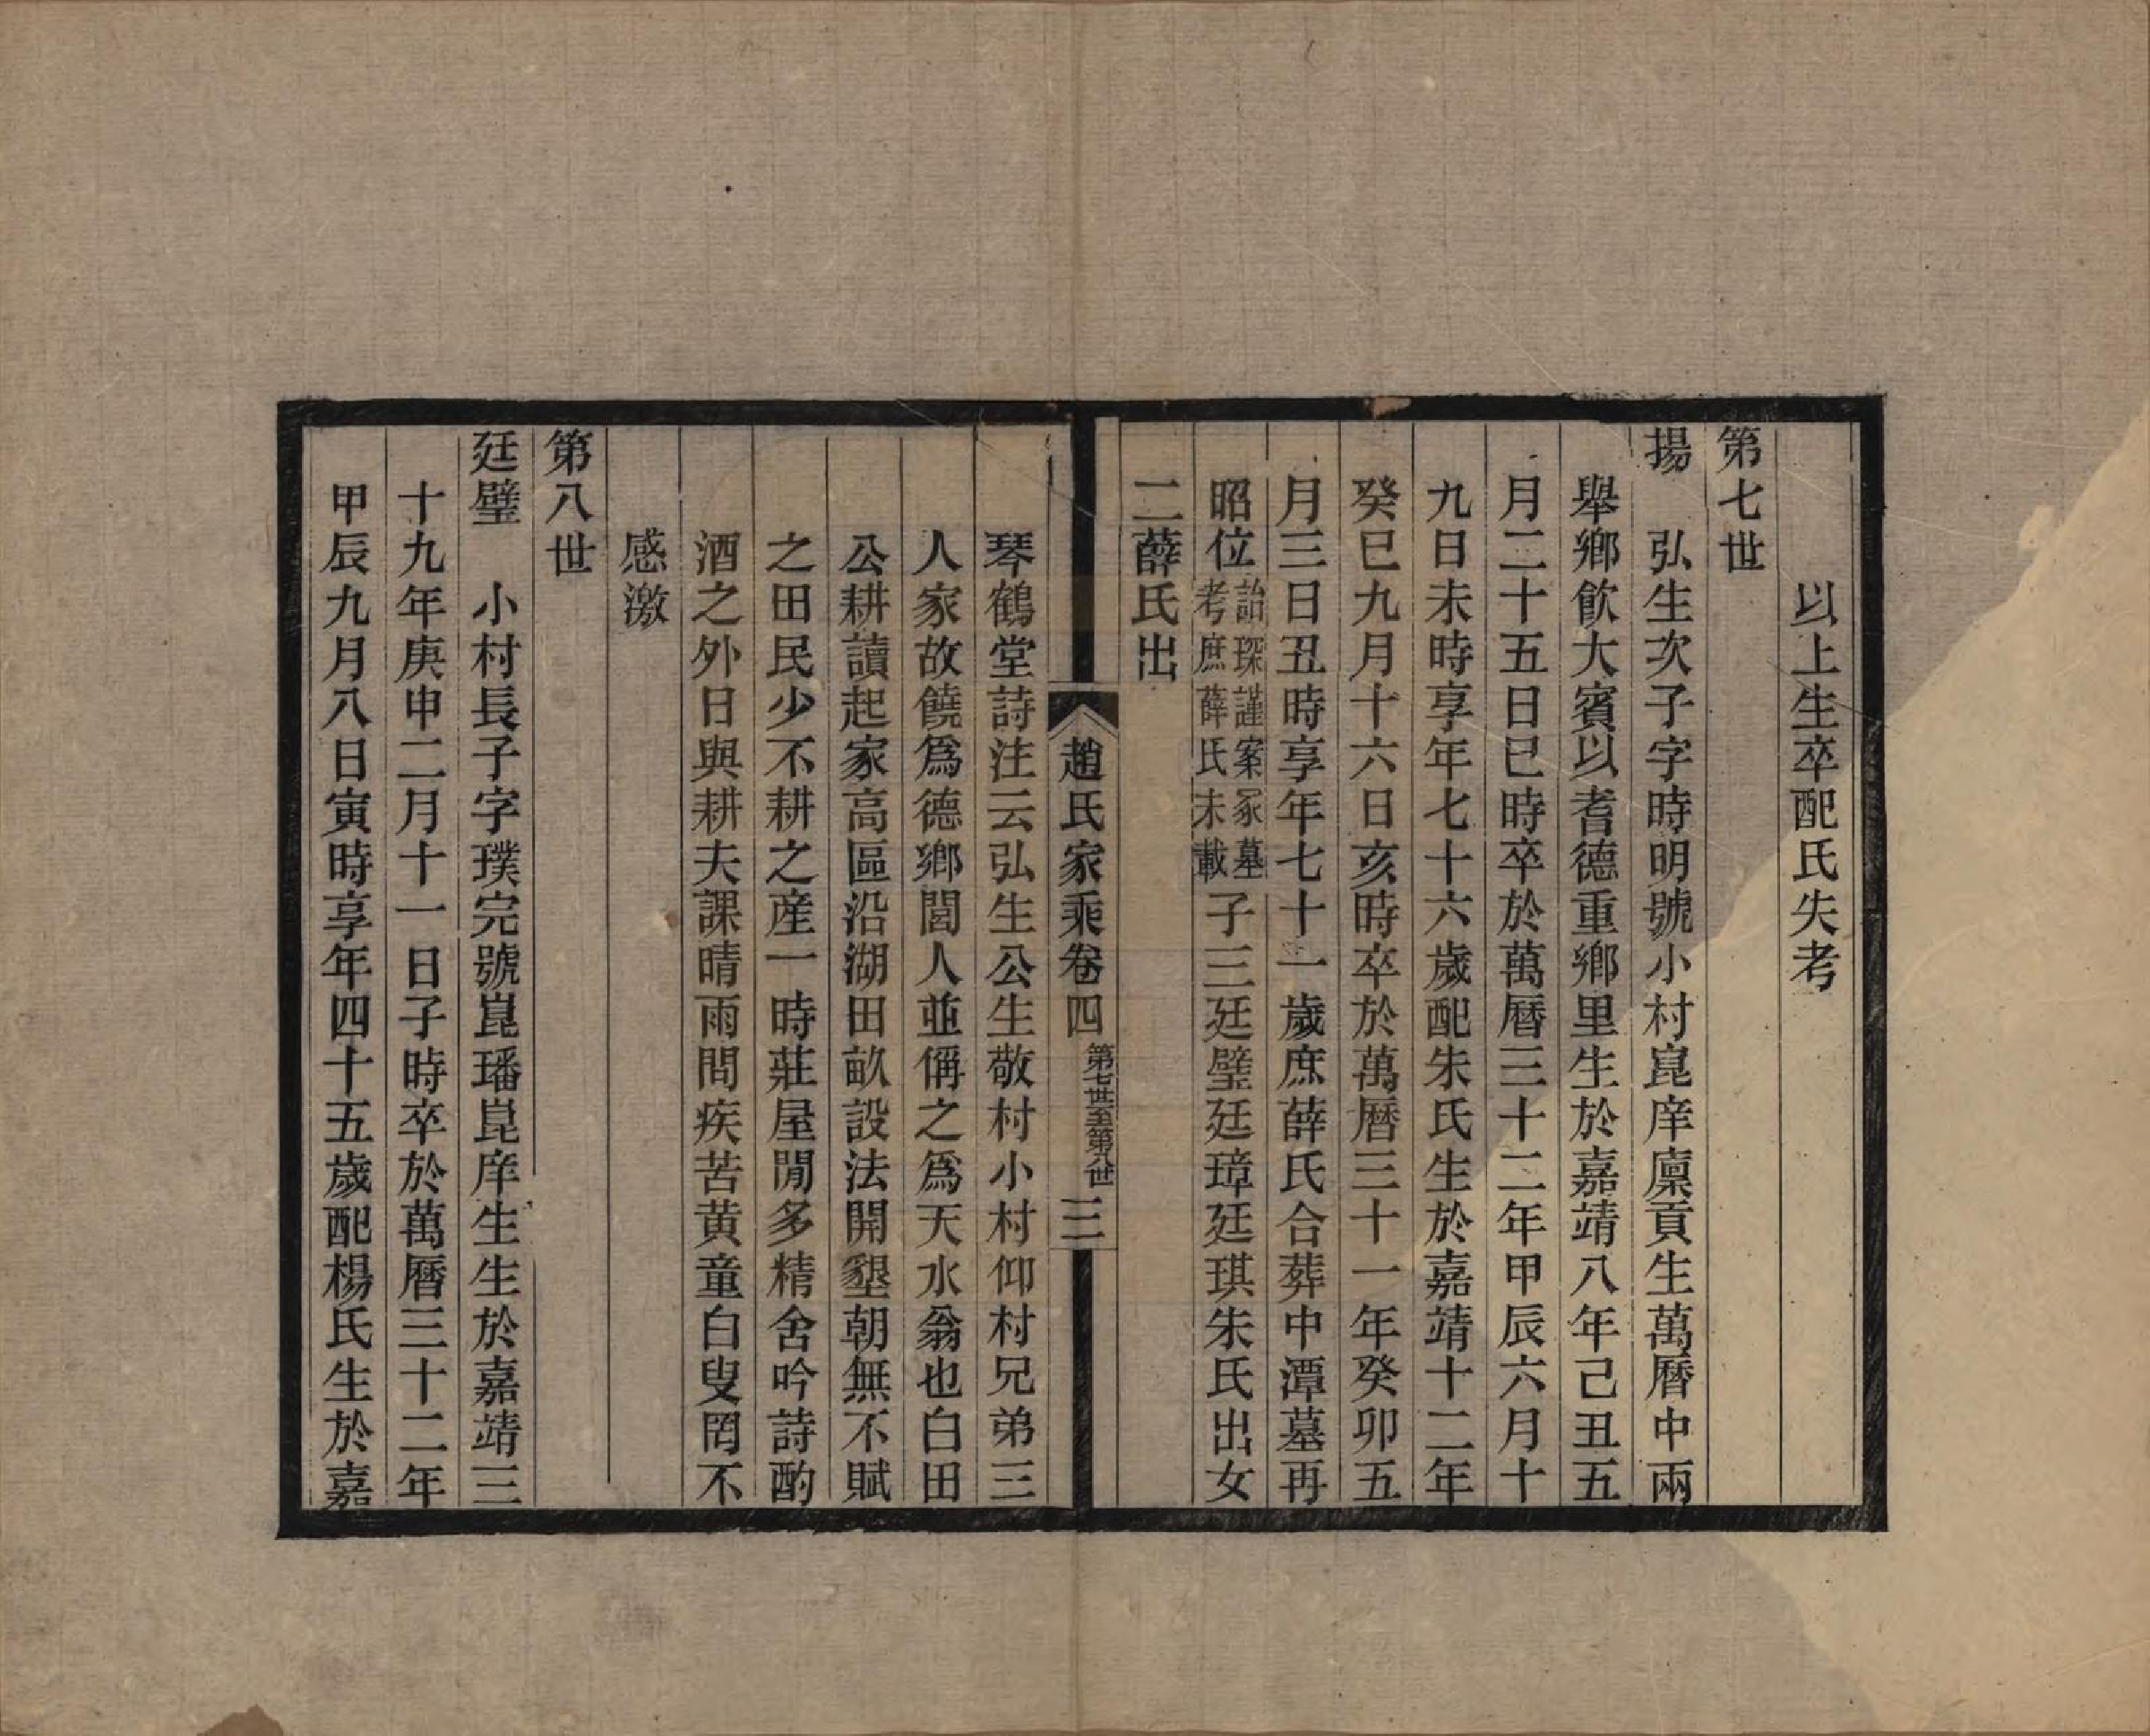 以上生卒配氏失考
第七世
揚　弘生次子字時明號小村崑庠廩貢生萬曆中兩
舉鄉飮大賓以耆德重鄉里生於嘉靖八年己丑五
月二十五日巳時卒於萬曆三十二年甲辰六月十
九日未時享年七十六歲配朱氏生於嘉靖十二年
癸巳九月十六日亥時卒於萬曆三十一年癸卯五
月三日丑時享年七十一歲庶薛氏合葬中潭墓再
昭位詒琛謹案冢墓考庶薛氏未載子三廷璧廷璋廷琪朱氏出女
二薛氏出
趙氏家乘卷四　第七世至第八世　三
琴鶴堂詩注云弘生公生敬村小村仰村兄弟三
人家故饒爲德鄉閭人並偁之爲天水翁也白田
公耕讀起家高區沿湖田畝設法開墾朝無不賦
之田民少不耕之産一時莊屋閒多精舍吟詩酌
酒之外日與耕夫課晴雨問疾苦黄童白叟罔不
感激
第八世
廷璧　小村長子字璞完號崑璠崑庠生生於嘉靖三
十九年庚申二月十一日子時卒於萬曆三十二年
甲辰九月八日寅時享年四十五歲配楊氏生於嘉